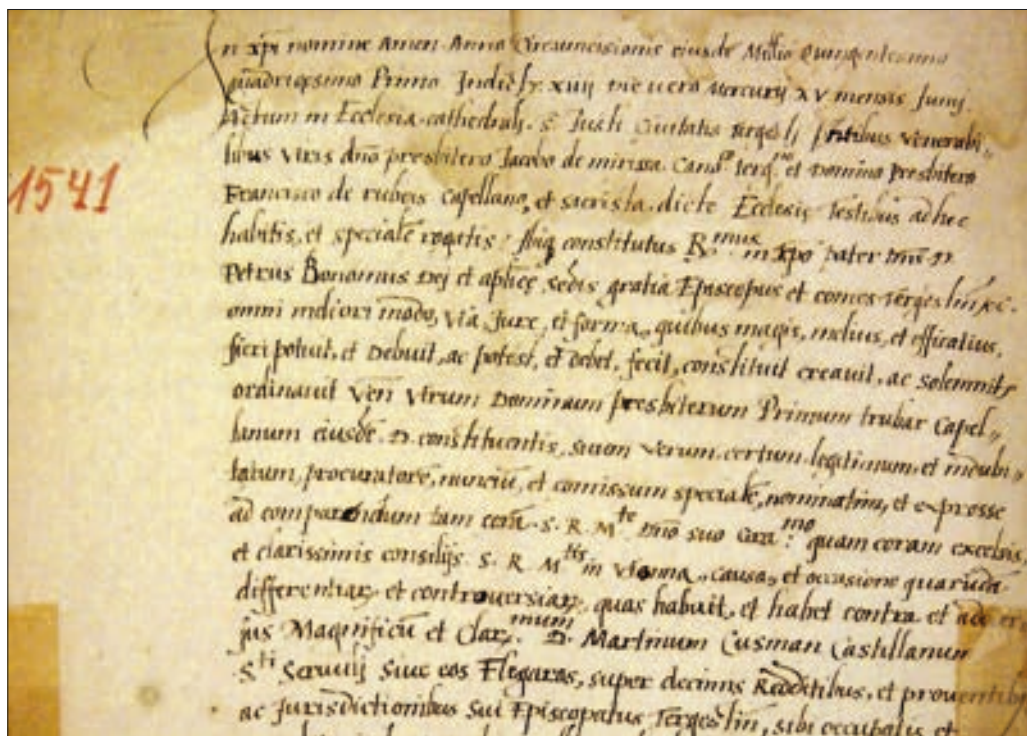 n xpi nomine Amen. Anno Circumcisionis eiusdē Millio Quingentesimo
quadrigesimo Primo Indicſr. xiiij die uero Mercurij XV mensis Junij.
Actum in Ecclesia cathedrali. S. Justi Ciuitatis Tergesti pntibus Venerabi„
libus viris dno presbitero Jacobo de mirissa. Canoco Terg.no et Domino presbitero
1541
Francisco de rubeis Capellano, et sacrista dicte Ecclesie testibus ad hec
habitis, et specialr̄ rogatis. Ibiq constitutus R.mus in xpo pater dns D.
Petrus Bonomus Dej et aplicę sedis gratia Episcopus et comes Tergestin̄ ec.
omni meliori modo, via Jure, et forma, quibus magis, melius, et efficatius,
fieri potuit, et Debuit, ac potest, et debet, fecit, constituit creauit, ac solemnitr
ordinauit Ven̄ Virum Dominum presbiterum Primum trubar Capel„
lanum eiusdē. D. constituentis, suum verum. certum. legitimum, et indubi„
tatum, procuratorē, nunciū, et comissum specialē, nominatim, et expresse
ad comparendum tam corā. S. R. M.te dno suo Gra.mo quam coram excelsis,
et clarissimis consilijs S. R. M.tis in vienna, causa, et occasione quarūdā
differentiaꝝ et controuersiaꝝ, quas habuit, et habet contra et
jus Magnificū et Clar.mum D. Martinum Cusman Castillanum
S.ti Seruulj siue eos Flegaros, super decimis Redditibus, et prouentibus
ac Jurisdictionibus Sui Episcopatus Tergestin̄, sibi occupatis et